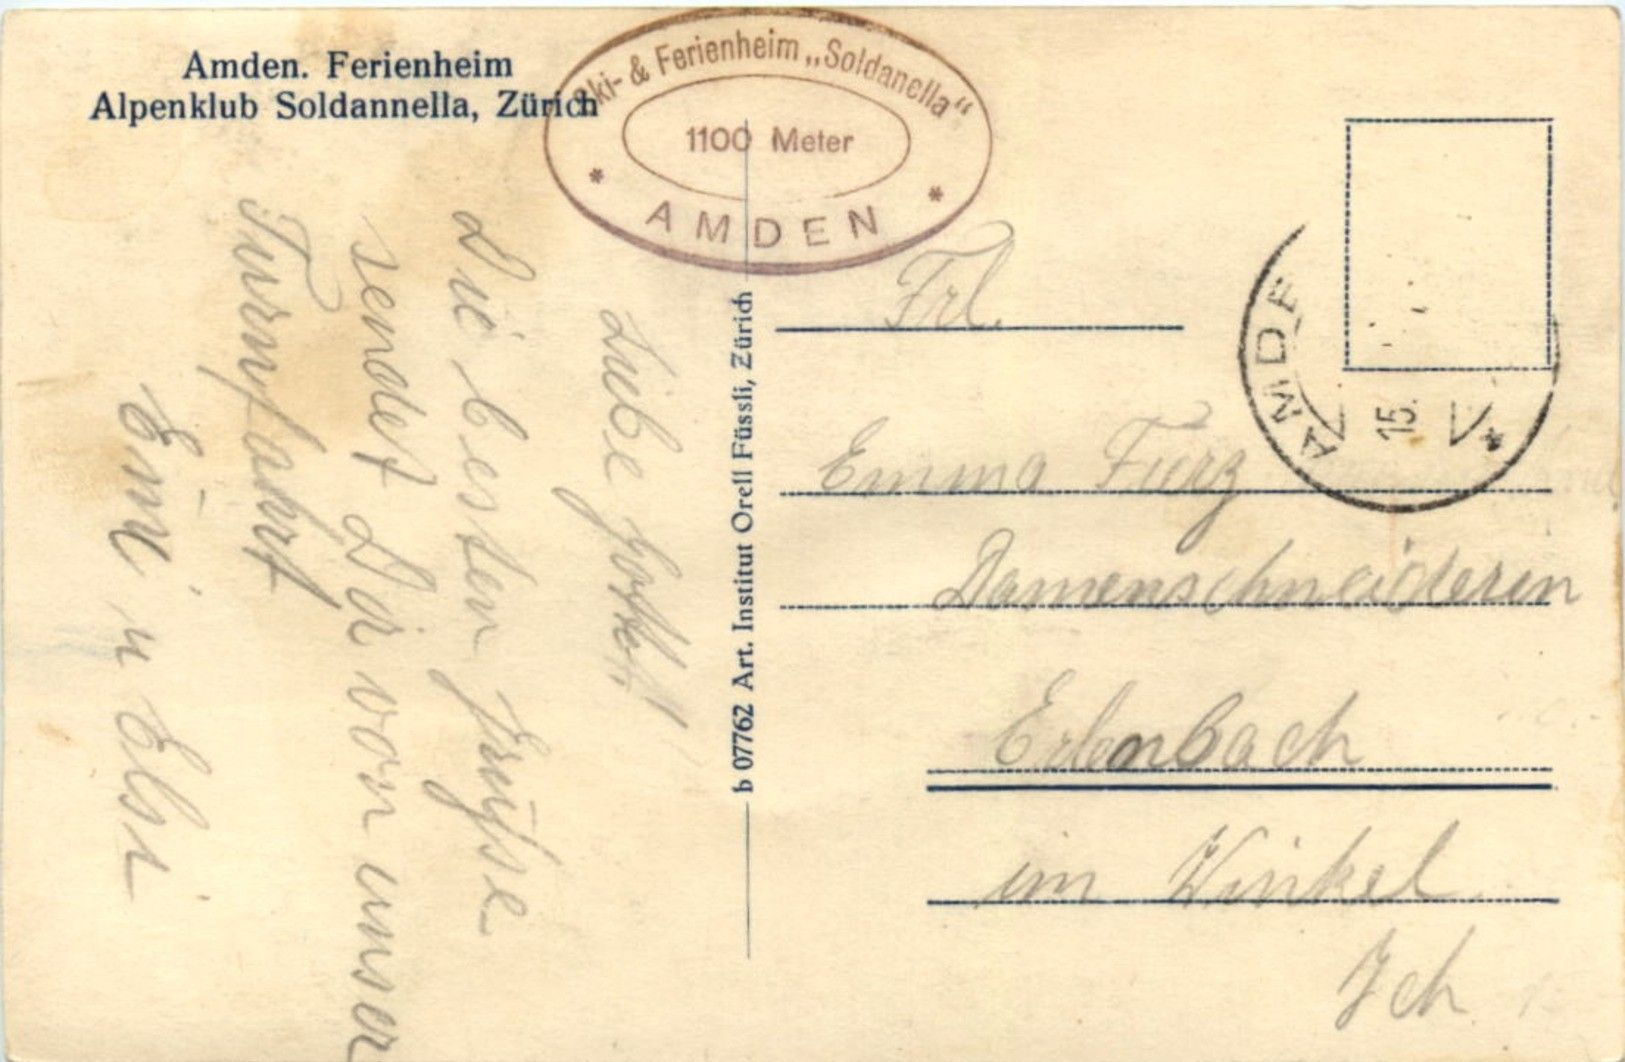 Amden. Ferienheim
Alpenklub Soldannella, Zürich
Ski- & Ferienheim „Soldanella“
1100 Meter
* AMDEN *
Liebe
Die besten Grüsse
sendet Dir von unser
Turnfahrt
Emi u Elsi
b 07762 Art. Institut Orell Füssli, Zürich
AMDE
15.
*
Frl.
Emma
Damenschneiderin
Erlenbach
im Winkel